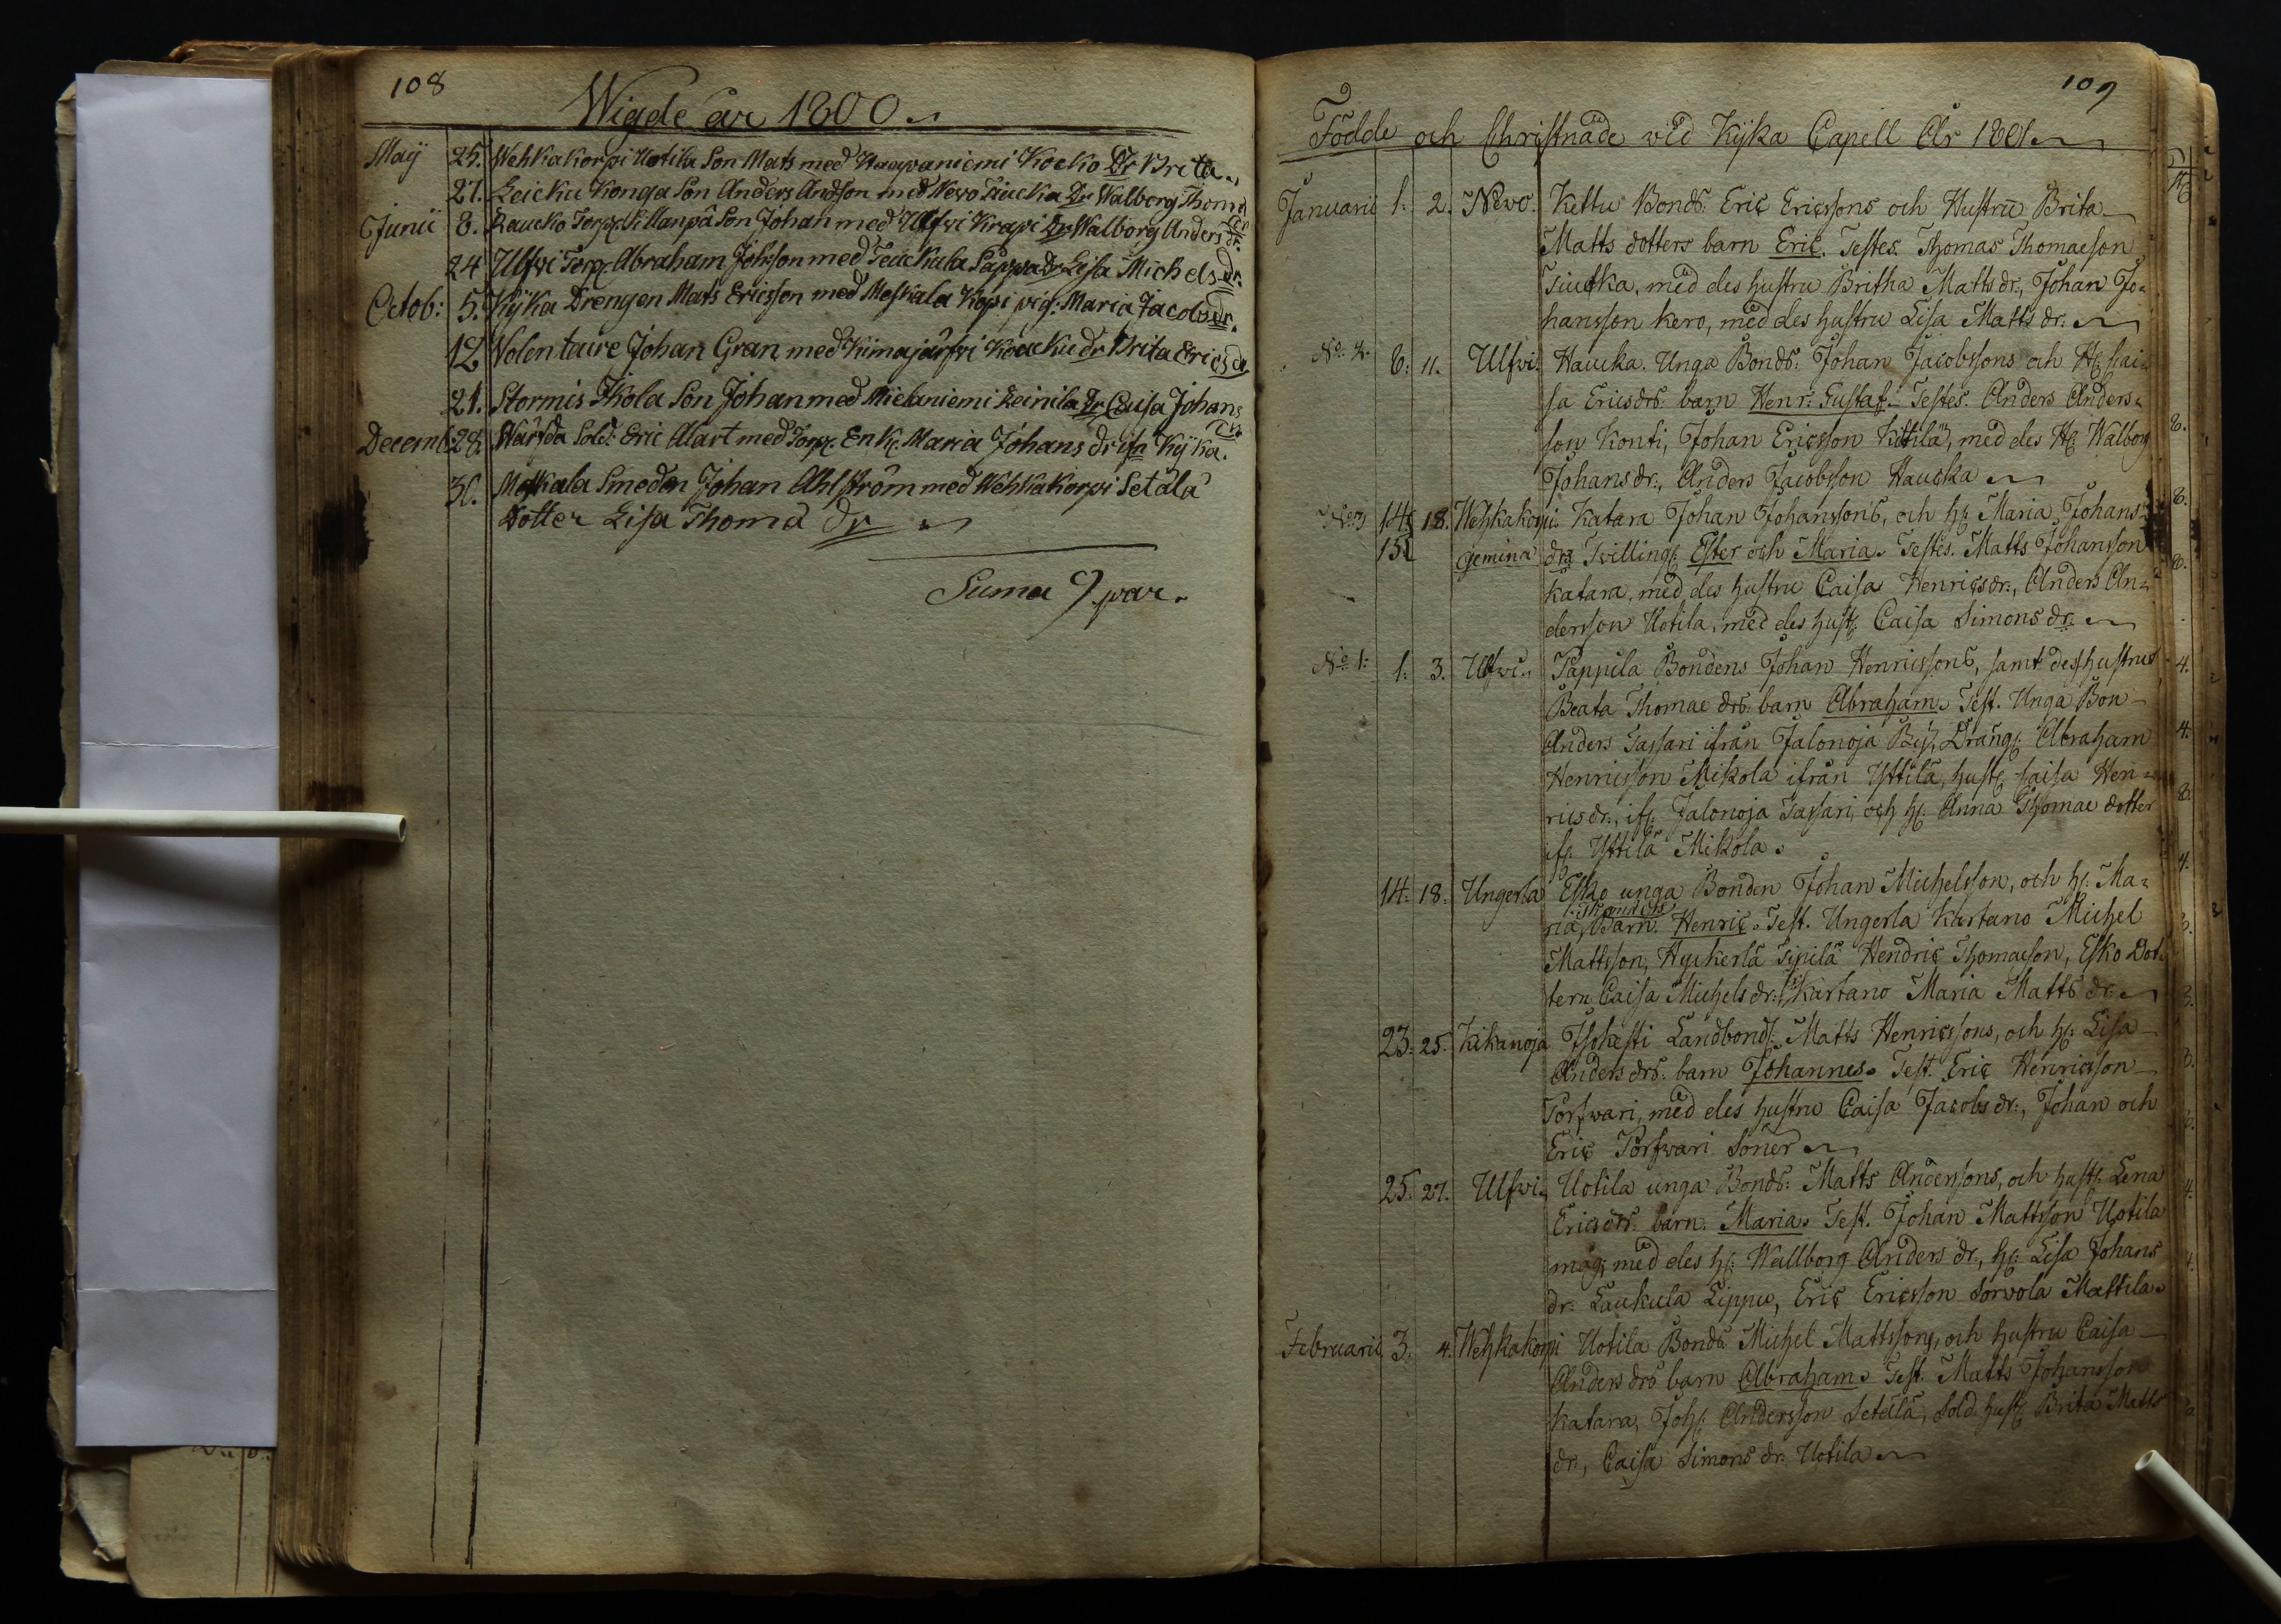 108
Wigde år 1800.
Maij 25. Wehkakorpi Uotila Son Mats med Haapaniemi Kocko Dr Brita.
27. Leicku Konga Son Anders Andson med Newo Tiucka Dr Walborg Thomæ dr
Junii 8. Raucko Torp. Killanpä Son Johan med Ulfwi Krapi Dr Walborg Anders dr.
24 Ulfwi Torp. Abraham Johsson med Teuckula Pappa dr Lisa Michels dr.
Octob: 5. Kÿka Drengen Mats Ericsson med Meskala Kopi pig: Maria Jacobs dr.
12 Volentaire Johan Gran med Kimajärfwi Koucku dr Brita Erics dr
21. Stormis Ikola Son Johan med Mielaniemi Heinila Dr Caisa Johans dr.
Decemb 28. Wärfda Sold: Eric Alart med Torp. Enk. Maria Johans dr ifn Kÿka.
30. Meskala Smeden Johan Ahlström med Wehkakorpi Setälä
Dotter Lisa Thomæ dr
Suma 9 par.
109
Födde och Christnade wid Kÿka Capell År 1801.
Januarii 1. 2. Newo. Kettu Bonds. Eric Ericssons och Hustru Brita
Matts dotters barn Eric. Testes. Thomas Thomaeson
Tiucka, med des hustru Britha Matts dr., Johan Jo=
hansson Kero, med des hustru Lisa Matts dr.
No. 2. 6. 11. Ulfwi. Haucka. Unga Bonds: Johan Jacobssons och H. Cai=
sa Ericsdrs. barn Henr: Gustaf. Testes. Anders Anders=
son Konti, Johan Ericsson Kittilä, med des H. Walborg
Johans dr., Anders Jacobsson Haucka
No 3 14 18. Wehkakorpi Katara Johan Johanssons, och h: Maria Johans=
15 gemina drs Twilling: Ester och Maria. Testes. Matts Johansson
Katara, med des hustru Caisa Henrics dr., Anders An=
dersson Uotila, med des hust: Caisa Simons dr.
No 1: 1. 3. Ulfwi. Pappila Bondens Johan Henricssons, samt des hustrus
Beata Thomae drs. barn Abraham. Test. Unga Bon
Anders Tassari ifrån Jalonoja By, Dräng: Abraham
Henricsson Mikola ifrån Yttilä, hust: Caisa Hen=
rics dr., if: Jalonoja Tassari, och h: Anna Thomae dotter
if: Yttilä Mikola.
14. 18. Ungerla Esko unga Bonden Johan Michelsson, och h: Ma=
ria Barn. Henric. Test. Ungerla Kartano Michel
Mattsson, Hyckerlä Sipilä Hendric Thomaeson, Esko Dot=
tern Caisa Michels dr. Kartano Maria Matts dr.
23. 25. Kikanoja Isokesti Landbond: Matts Henricssons, och h: Lisa
Anders drs. barn Johannes. Test. Eric Henricsson
Torfwari, med des hustru Caisa Jacobs dr., Johan och
Eric Torfwari Söner
25. 27. Ulfwi. Uotila unga Bonds: Matts Anderssons, och hust: Lena
Erics drs. barn. Maria. Test. Johan Mattsson Uotila
måg, med des h: Wallborg Anders dr., h: Lisa Johans
dr. Laukula Lippu, Eric Ericsson Sorvola Mattila.
Februarii 3. 4. Wehkakorpi Uotila Bonds Michel Mattssons, och hustru Caisa
Anders drs barn Abraham. Test. Matts Johansson
Katara, Joh: Andersson Setälä, Sold. hust: Brita Matts
dr., Caisa Simons dr. Uotila